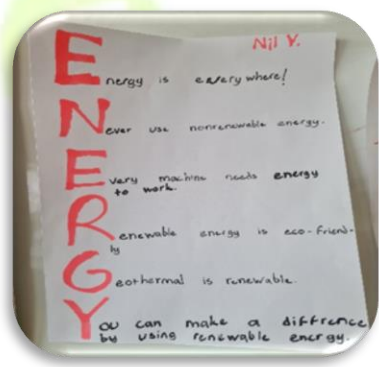 Nil Y.
Energy is everywhere!
Never use nonrenewable energy.
Every machine needs energy
to work.
Renewable energy is eco-friend-
ly
Geothermal is renewable.
You can make a diffrence
by using renewable energy.